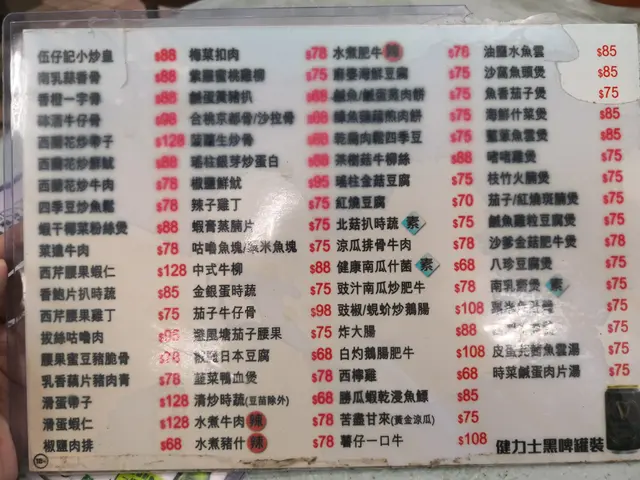 伍仔記小炒皇 $88
南乳蒜香骨 $88
香橙一字骨 $88
牛仔骨 $98
西蘭花炒帶子 $128
西蘭花炒 $88
西蘭花炒牛肉 $78
四季豆炒魚鬆 $78
蝦干椰菜粉絲煲 $88
菜遠牛肉 $78
西芹腰果蝦仁 $128
香鮑片扒時蔬 $85
西芹腰果雞丁 $75
拔絲咕嚕肉 $95
腰果蜜豆豬脆骨 $78
乳香藕片豬肉膏 $78
滑蛋帶子 $128
滑蛋蝦仁 $128
椒鹽肉排 $68
梅菜扣肉 $78
紫蘿蜜桃雞柳 $75
鹹蛋黃豬扒 $68
合桃京都骨/沙拉骨 $88
菠蘿生炒骨 $68
瑤柱銀芽炒蛋白 $88
椒鹽鮮魷 $95
辣子雞丁 $75
蝦膏蒸腩片 $75
咕嚕魚塊/粟米魚塊 $75
中式牛柳 $88
金銀蛋時蔬 $75
茄子牛仔骨 $98
避風塘茄子腰果 $75
椒鹽日本豆腐 $68
韮菜鴨血煲 $78
清炒時蔬(豆苗除外) $68
水煮牛肉 辣 $78
水煮豬什 辣 $78
水煮肥牛 辣 $78
麻婆海鮮豆腐 $75
鹹魚/鹹蛋蒸肉餅 $75
土魷馬蹄蒸肉餅
乾扁肉鬆四季豆 $75
茶樹菇牛柳絲 $88
瑤柱金菇豆腐 $75
紅燒豆腐 $70
北菇扒時蔬 素 $75
涼瓜排骨牛肉 $78
健康南瓜什菌 素 $68
豉汁南瓜炒肥牛 $78
豉椒/蜆蚧炒鵝腸 $108
炸大腸 $88
白灼鵝腸肥牛 $108
西檸雞 $68
勝瓜蝦乾浸魚鰾 $85
苦盡甘來(黃金涼瓜) $75
薯仔一口牛 $108
油鹽水魚雲 $85
沙窩魚頭煲 $85
魚香茄子煲 $75
海鮮什菜煲 $85
魚雲煲 $85
啫啫雞煲 $75
枝竹火腩煲 $75
茄子/紅燒斑腩煲 $75
鹹魚雞粒豆腐煲 $75
沙爹金菇肥牛煲 $78
八珍豆腐煲 $75
南乳齋煲 素 $75
$75
$75
皮蛋芫茜魚雲湯 $75
時菜鹹蛋肉片湯 $75
健力士黑啤罐裝